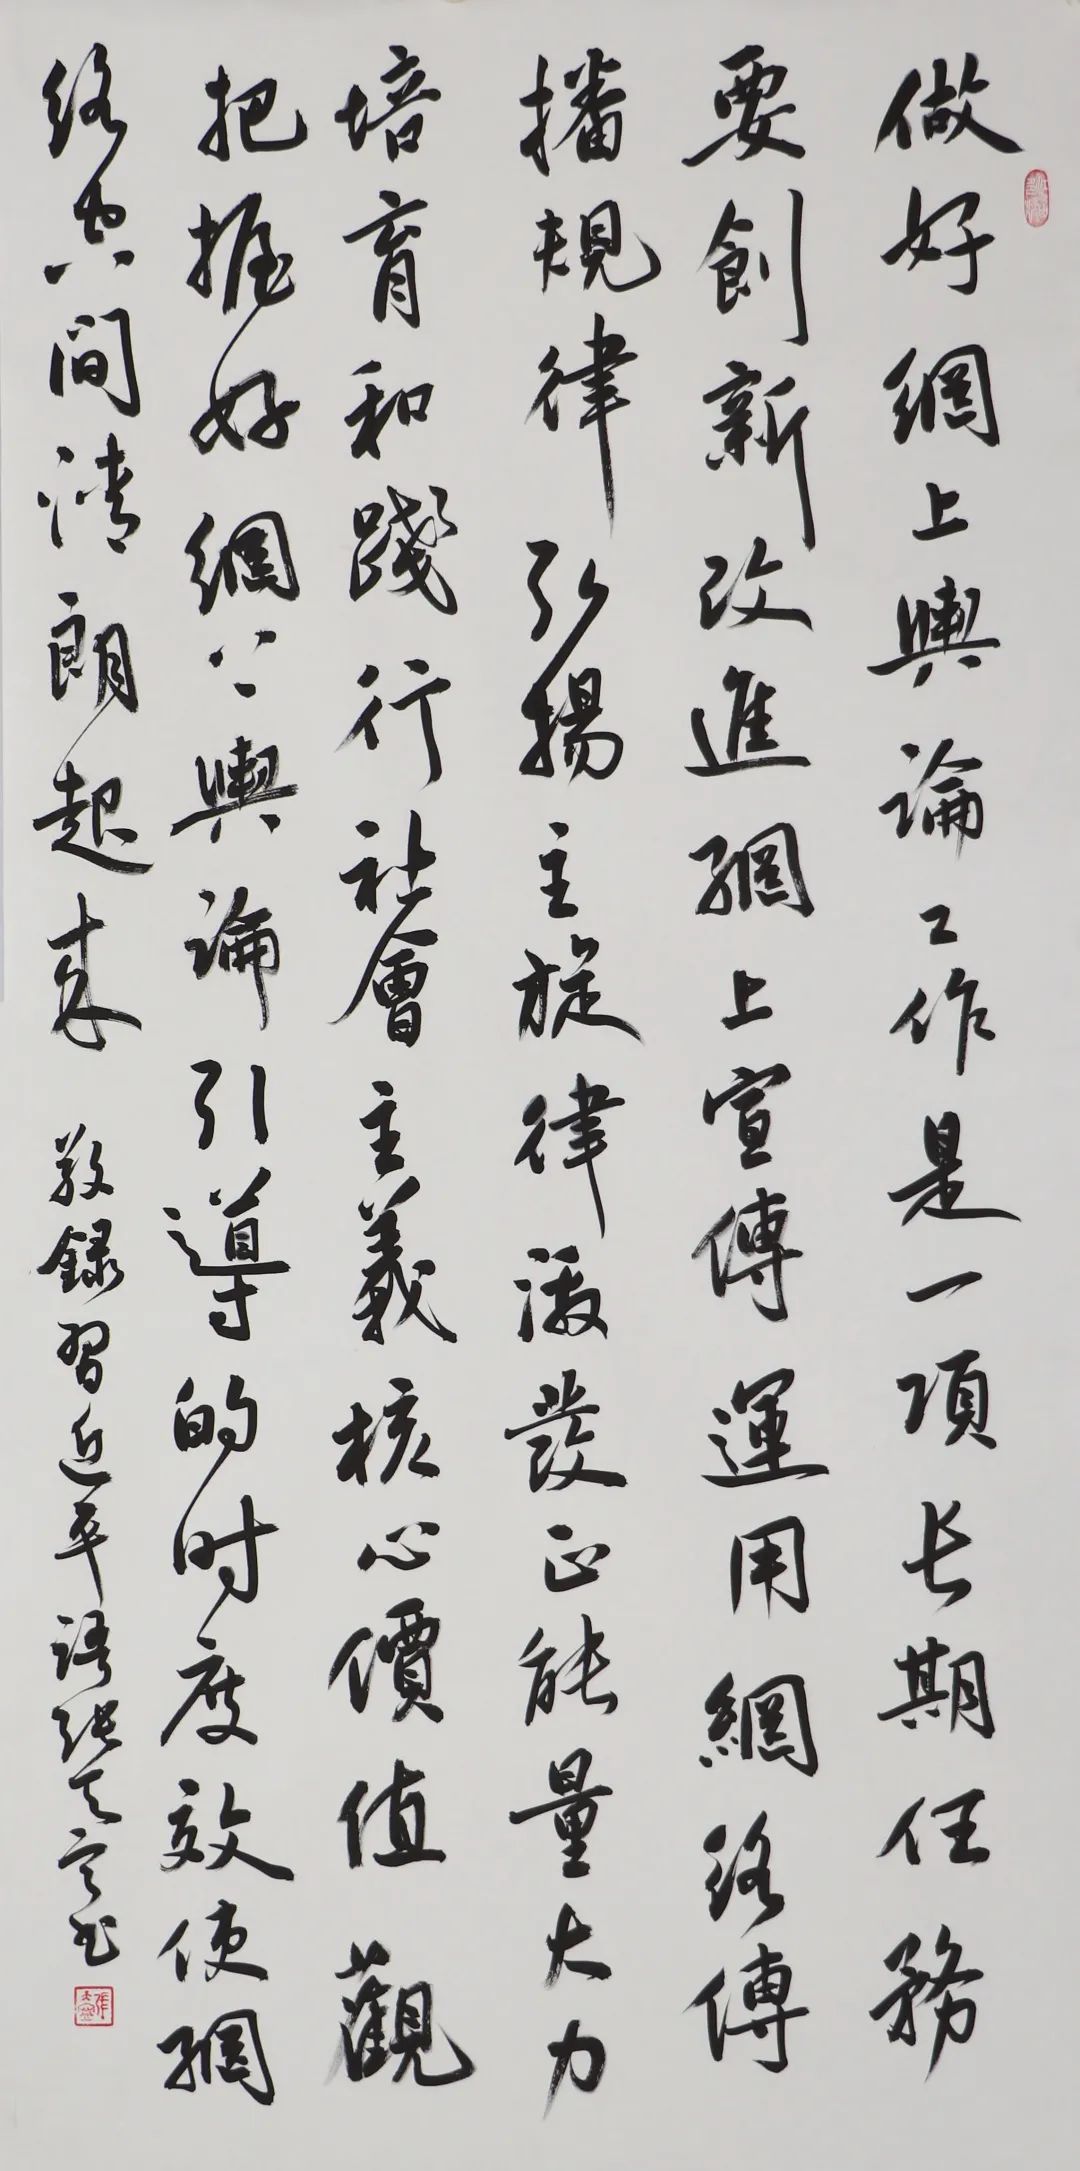 做好網上輿論工作是一項长期任務
要創新改進網上宣傳運用網络傳
播規律弘揚主旋律激發正能量大力
培育和踐行社會主義核心價值觀
把握好網上輿論引導的时度效使網
络空间清朗起来
敬録習近平語張天